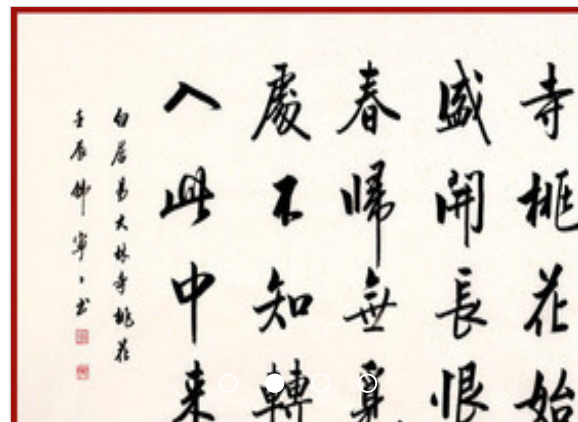 寺桃花始
盛開長恨
春歸無覓
處不知轉
入此中来
白居易大林寺桃花
壬辰 寧 书